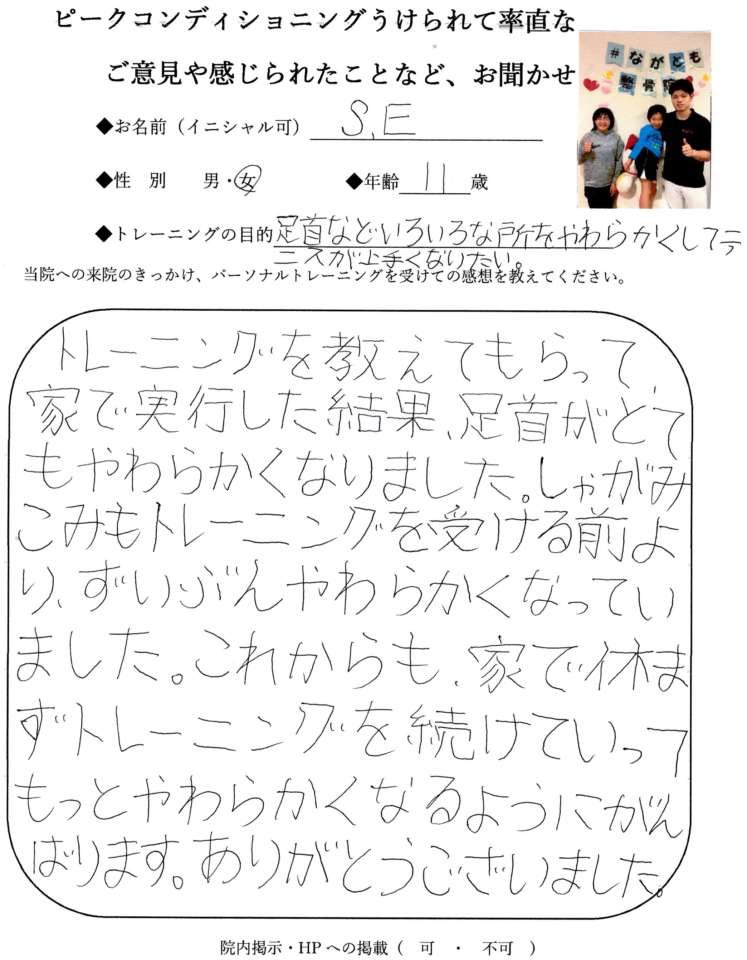 ピークコンディショニングうけられて率直な
ご意見や感じられたことなど、お聞かせ
#ながとも
整骨院
◆お名前（イニシャル可） S,E
◆性 別 男・女 ◆年齢 11 歳
◆トレーニングの目的 足首などいろいろな所をやわらかくしてテ
ニスが上手くなりたい。
当院への来院のきっかけ、パーソナルトレーニングを受けての感想を教えてください。
トレーニングを教えてもらって、
家で実行した結果、足首がとて
もやわらかくなりました。しゃがみ
こみもトレーニングを受ける前よ
り、ずいぶんやわらかくなってい
ました。これからも、家で休ま
ずトレーニングを続けていって
もっとやわらかくなるようにがん
ばります。ありがとうございました。
院内掲示・HPへの掲載（ 可 ・ 不可 ）